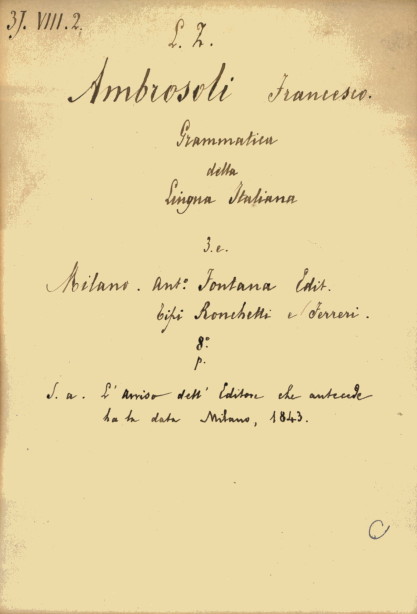 37. VIII. 2.
L. Z.
Ambrosoli Francesco.
Grammatica
della
Lingua Italiana
3. e.
Milano. Ant.º Fontana Edit.
Tipi Ronchetti e Ferreri.
8.º
p.
S. a. L'Avviso dell'Editore che antecede
ha la data Milano, 1843.
C